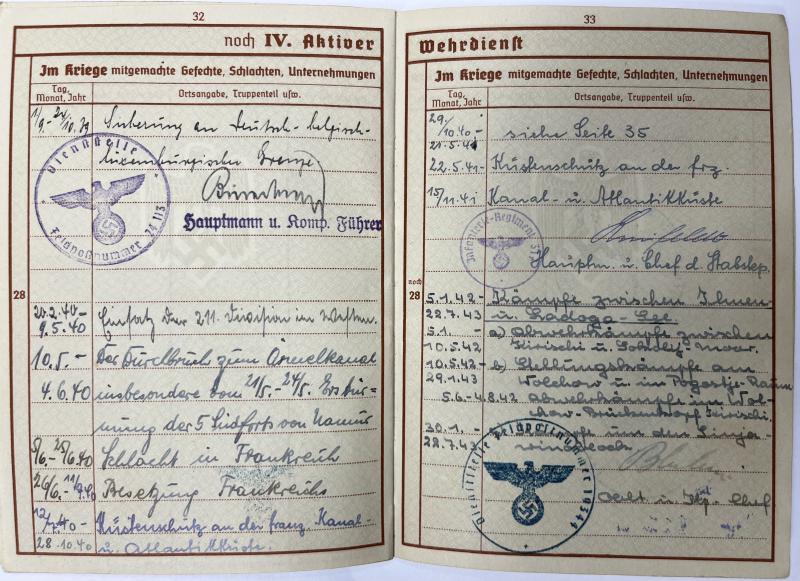 32
noch IV. Aktiver
Im Kriege mitgemachte Gefechte, Schlachten, Unternehmungen
Tag, Monat, Jahr
Ortsangabe, Truppenteil usw.
1/9.- 24/10.39 Sicherung an Deutsch-belgisch-
luxemburgische Grenze.
Dienststelle
Feldpostnummer 24113
Hauptmann u. Komp. Führer
28
20.2.40- Einsatz der 211. Division im Westen.
9.5.40
10.5.- Der Durchbruch zum Ärmelkanal
4.6.40 insbesondere vom 21/5.- 24/5. Erstür-
mung der 5 Südforts von Namur
5/6.-25/6.40 Schlacht in Frankreich
26/6.-11/7.40 Besetzung Frankreichs
12/7.40- Küstenschutz an der franz. Kanal-
28.10.40 u. Atlantikküste.
33
Wehrdienst
Im Kriege mitgemachte Gefechte, Schlachten, Unternehmungen
Tag, Monat, Jahr
Ortsangabe, Truppenteil usw.
29/10.40- siehe Seite 35
21.5.41
22.5.41- Küstenschutz an der frz.
15/11.41 Kanal- u. Atlantikküste
Infanterie-Regiment
Hauptm. u. Chef d. Stabskp.
noch 28
5.1.42- Kämpfe zwischen Ilmen-
28.7.43 u. Ladoga-See.
5.1.- a) Abwehrkämpfe zwischen
10.5.42 Kirischi u. Moor.
10.5.42- b) Stellungskämpfe am
29.1.43 Wolchow u. im Pogostje-Raum
5.6.-4.8.42 Abwehrkämpfe im Wol-
chow-Brückenkopf Kirischi.
30.1.- um den Sinja-
28.7.43 winoblock
Dienststelle Feldpostnummer
u. Kp. Chef